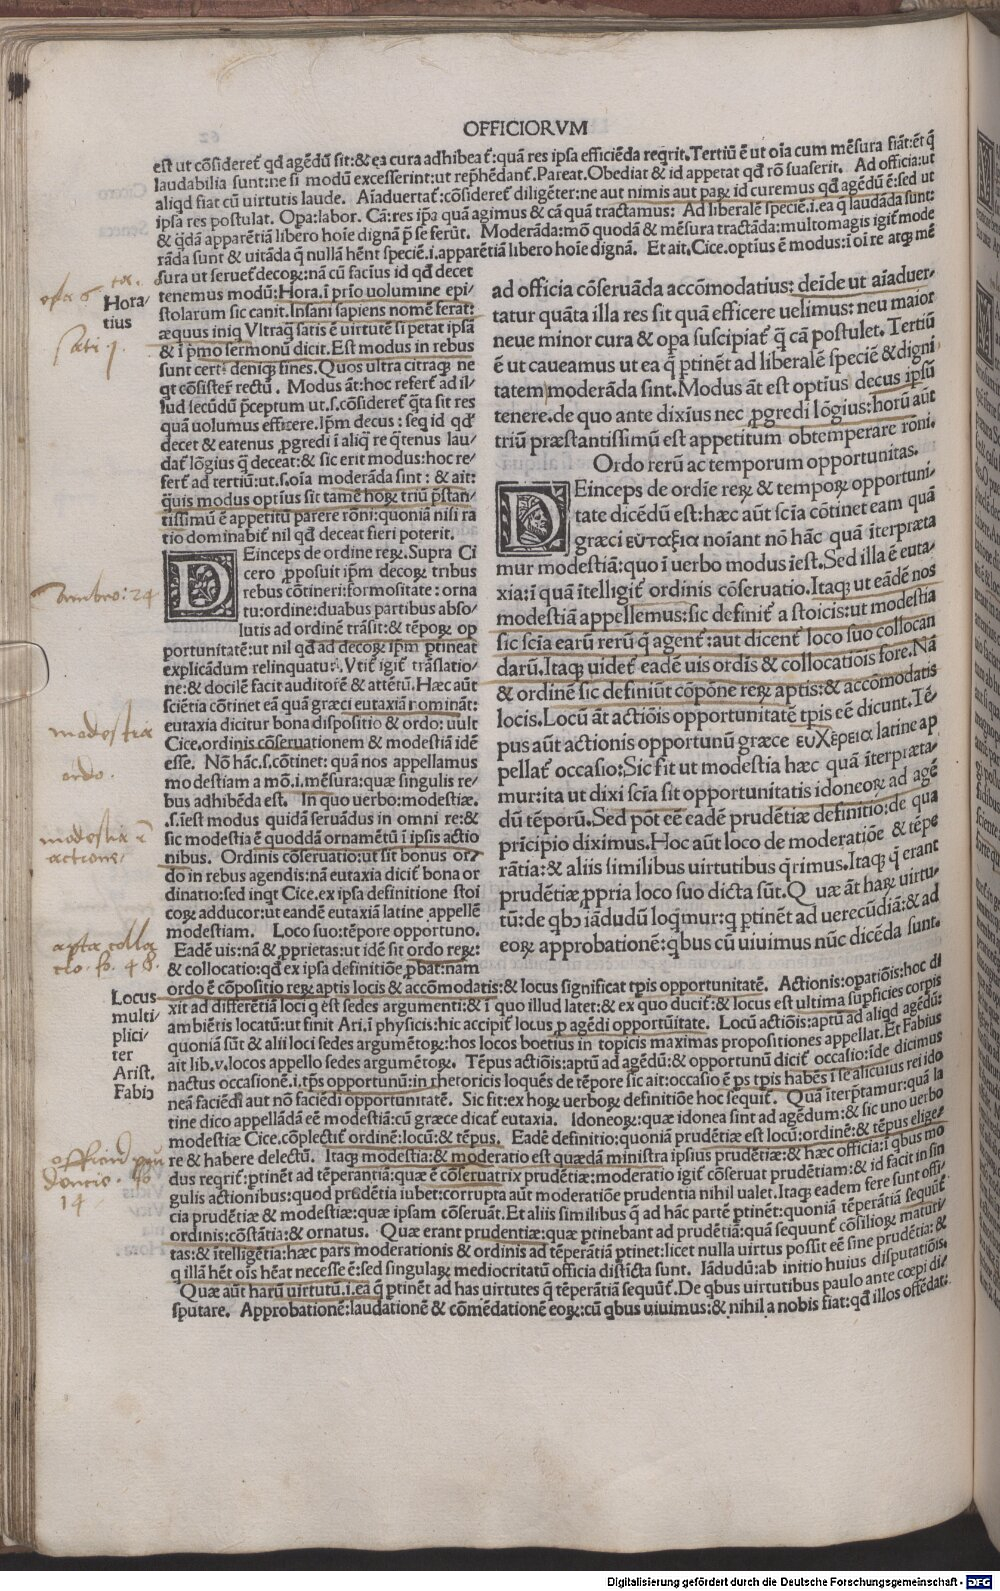 OFFICIORVM
est ut cōsideret᷑ qđ agēdū sit:& ea cura adhibeat᷑:quā res ipsa efficiēda reqrit.Tertiū ē ut oīa cum mēsura fiāt:et q̄
laudabilia sunt:ne si modū excesserint:ut rep̄hēdant᷑.Pareat.Obediat & id appetat qđ rō suaserit. Ad officia:ut
aliqd fiat cū uirtutis laude. Aīaduertat᷑:cōsideret᷑ diligēter:ne aut nimis aut paꝝ id curemus qđ agēdū ē:sed ut
ipsa res postulat. Opa:labor. Cā:res ip̄a quā agimus & cā quā tractamus: Ad liberalē speciē.i.ea q̄ laudāda sunt:
& q̄dā apparētiā libero hoīe dignā p̄ se ferūt. Moderāda:mō quodā & mēsura tractāda:multomagis igit᷑ mode
rāda sunt & uitāda q̄ nullā hēnt speciē.i.apparētiā libero hoīe dignā. Et ait.Cice.optius ē modus:i oī re atqꝫ mē
sura ut seruet᷑ decoꝝ:nā cū facius id qđ decet
tenemus modū:Hora.ī prīo uolumine epi/
stolarum sic canit.Insani sapiens nomē ferat:
æquus iniq Vltraq̄ satis ē uirtutē si petat ipsā
& ī p̄mo sermonū dicit.Est modus in rebus
sunt certi deniqꝫ fines.Quos ultra citraqꝫ ne
qt cōsister̄ rectū. Modus āt:hoc refert᷑ ad il/
lud secūdū p̄ceptum ut.s.cōsideret᷑ q̄ta sit res
quā uolumus efficere.Ip̄m decus : seq̄ id qđ
decet & eatenus ꝓgredi ī aliq̄ re q̄tenus lau/
dat᷑ lōgius q̄ deceat:& sic erit modus:hoc re/
fert᷑ ad tertiū:ut.s.oīa moderāda sint : & ait:
q̄uis modus optius sit tamē hoꝝ triū p̄stan/
tissimū ē appetitū parere rōni:quoniā nisi ra
tio dominabit᷑ nil qđ deceat fieri poterit.
DEinceps de ordine reꝝ.Supra Ci
cero ꝓposuit ip̄m decoꝝ tribus
rebus cōtineri:formositate : orna
tu:ordine:duabus partibus abso/
lutis ad ordinē trāsit:& tēpoꝝ op
portunitatē:ut nil qđ ad decoꝝ ip̄m ptineat
explicādum relinquatur.Vtit᷑ igit᷑ trāslatio/
ne:& docilē facit auditorē & attētū.Hæc aūt
sciētia cōtinet eā quā græci eutaxiā nomināt:
eutaxia dicitur bona dispositio & ordo: uult
Cice.ordinis cōseruationem & modestiā idē
esse. Nō hāc.s.cōtinet: quā nos appellamus
modestiam a mō.i.mēsura:quæ singulis re/
bus adhibēda est. In quo uerbo:modestiæ.
.s.iest modus quidā seruādus in omni re:&
sic modestia ē quoddā ornamētū ī ipsis actio
nibus. Ordinis cōseruatio:ut sit bonus or/
do in rebus agendis:nā eutaxia dicit᷑ bona or
dinatio:sed inqt Cice.ex ipsa definitione stoi
coꝝ adducor:ut eandē eutaxiā latine appellē
modestiam. Loco suo:tēpore opportuno.
Eadē uis:nā & ꝓprietas:ut idē sit ordo reꝝ:
& collocatio:qđ ex ipsa definitiōe ꝓbat:nam
ad officia cōseruāda accōmodatius: deīde ut aīaduer/
tatur quāta illa res sit quā efficere uelimus: neu maior
neue minor cura & opa suscipiat᷑ q̄ cā postulet. Tertiū
ē ut caueamus ut ea q̄ ptinēt ad liberalē speciē & digni
tatem moderāda sint.Modus āt est optīus decus ipsū
tenere.de quo ante dixius nec ꝓgredi lōgius:horū aūt
triū præstantissimū est appetitum obtemperare rōni.
Ordo rerū ac temporum opportunitas.
DEinceps de ordīe reꝝ & tempoꝝ opportuni
tate dicēdū est:hæc aūt scīa cōtinet eam quā
græci ευταξια noīant nō hāc quā īterpræta
mur modestiā:quo ī uerbo modus īest.Sed illa ē euta/
xia:ī quā ītelligit᷑ ordinis cōseruatio.Itaqꝫ ut eādē nos
modestiā appellemus:sic definit᷑ a stoicis:ut modestia
sic scīa earū rerū q̄ agent᷑:aut dicent᷑ loco suo collocan
darū.Itaqꝫ uidet᷑ eadē uis ordīs & collocatiōis fore.Nā
& ordinē sic definiūt cōpōne reꝝ aptis:& accōmodatis
locis.Locū āt actiōis opportunitatē tpis eē dicunt.Tē/
pus aūt actionis opportunū græce ευχερεια latine ap
pellat᷑ occasio:Sic fit ut modestia hæc quā īterpræta/
mur:ita ut dixi scīa sit opportunitatis idoneoꝝ ad agē
dū tēporū.Sed pōt eē eadē prudētiæ definitio:de qua
prīcipio diximus.Hoc aūt loco de moderatiōe & tēpe
rātia:& aliis similibus uirtutibus q̄rimus.Itaqꝫ q̄ erant
prudētiæ ꝓpria loco suo dicta sūt.Quæ āt haꝝ uirtu/
tū:de qbꝰ iādudū loq̄mur:q ptinēt ad uerecūdiā:& ad
eoꝝ approbationē:qbus cū uiuimus nūc dicēda sunt.
ordo ē cōpositio reꝝ aptis locis & accōmodatis:& locus significat tpis opportunitatē. Actionis:opatiōis:hoc di
xit ad differētiā loci q est sedes argumenti:& ī quo illud latet:& ex quo ducit᷑:& locus est ultima supficies corpis
ambiētis locatū:ut finit Ari.ī physicis:hic accipit᷑ locus ꝓ agēdi opportūitate. Locū actiōis:aptū ad aliqd agēdū:
quoniā sūt & alii loci sedes argumētoꝝ:hos locos boetius in topicis maximas propositiones appellat.Et Fabius
ait lib.v.locos appello sedes argumētoꝝ. Tēpus actiōis:aptū ad agēdū:& opportunū dicit᷑ occasio:īde dicimus
nactus occasionē.i.tp̄s opportunū:in rhetoricis loquēs de tēpore sic ait:occasio ē ps tpis habēs ī se alicuius rei ido
neā faciēdi aut nō faciēdi opportunitatē. Sic fit:ex hoꝝ uerboꝝ definitiōe hoc sequit᷑. Quā īterptamur:quā la
tine dico appellādā eē modestiā:cū græce dicat᷑ eutaxia. Idoneoꝝ:quæ idonea sint ad agēdum:& sic uno uerbo
modestiæ Cice.cōplectit᷑ ordinē:locū:& tēpus. Eadē definitio:quoniā prudētiæ est locū:ordinē:& tēpus elige/
re & habere delectū. Itaqꝫ modestia:& moderatio est quædā ministra ipsius prudētiæ:& hæc officia:ī qbus mo
dus reqrit᷑:ptinēt ad tēperantiā:quæ ē cōseruatrix prudētiæ:moderatio igit᷑ cōseruat prudētiam:& id facit in sin
gulis actionibus:quod prudētia iubet:corrupta aūt moderatiōe prudentia nihil ualet.Itaqꝫ eadem fere sunt offi/
cia prudētiæ & modestiæ:quæ ipsam cōseruāt.Et aliis similibus q̄ ad hāc partē ptinēt:quoniā tēperātiā sequūt᷑
ordinis:cōstātia:& ornatus. Quæ erant prudentiæ:quæ ptinebant ad prudētiā:quā sequunt᷑ cōsilioꝝ maturi/
tas:& ītelligētia:hæc pars moderationis & ordinis ad tēperātiā ptinet:licet nulla uirtus possit eē sine prudētia: &
q illā hēt oīs hēat necesse ē:sed singulaꝝ mediocritatū officia disticta sunt. Iādudū:ab initio huius disputatiōis.
Quæ aūt harū uirtutū.i.ea q̄ ptinēt ad has uirtutes q̄ tēperātiā sequūt᷑.De qbus uirtutibus paulo ante cœpi di/
sputare. Approbationē:laudationē & cōmēdationē eoꝝ:cū qbus uiuimus:& nihil a nobis fiat:qđ illos offēdat:
Hora/
tius
modestia
ordo.
modestia ī
actione/
apta collo
tio. fo. 48.
Locus
multi/
plici/
ter
Arist.
Fabiꝰ
14
Digitalisierung gefördert durch die Deutsche Forschungsgemeinschaft - DFG